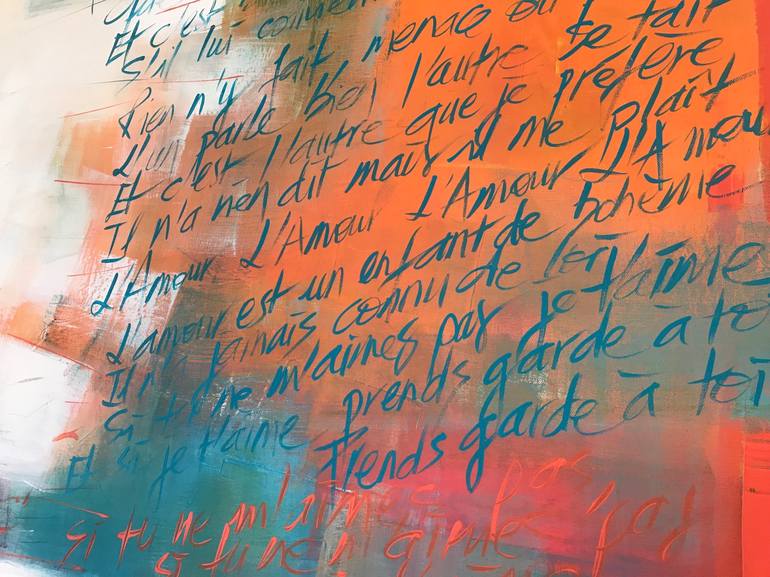 Et c'est
S'il lui convient
Rien n'y fait menace ou
L'un parle bien l'autre se tait
Et c'est l'autre que je préfère
Il n'a rien dit mais il me plaît
L'Amour L'Amour L'Amour L'Amour
L'amour est un enfant de bohème
Il n'a jamais connu de loi
Si tu ne m'aimes pas je t'aime
Et si je t'aime prends garde à toi
Prends garde à toi
Si tu ne m'aimes pas
Si tu ne m'aimes pas